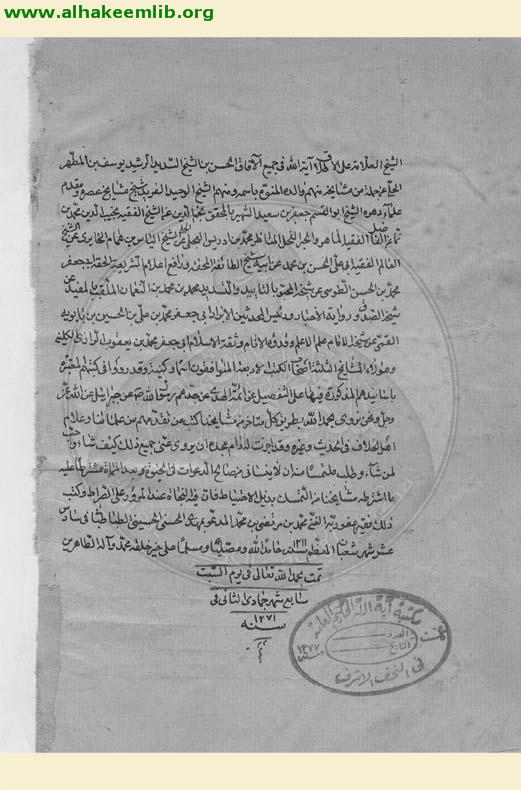 www.alhakeemlib.org
الشيخ العلامة على الاطلاق آية الله فى جميع الآفاق الحسن بن الشيخ السديد الرشيد يوسف بن المطهر
الحلى عن جملة من مشايخه منهم والده المنوه باسمه ومنهم الشيخ الوحيد الفريد شيخ مشايخ عصره ومقدم
علماء دهره الشيخ ابو القسم جعفر بن سعيد الشهير بالمحقق نجم الدين عن الشيخ الفقيه نجيب الدين محمد بن
نما عن الفاضل الفقيه الماهر والحبر محمد بن ادريس العجلى الحلى عن الشيخ الياس بن هشام الحايرى عن الشيخ
العالم الفقيه ابى على الحسن بن محمد عن ابيه شيخ الطائفة المحقة ورافع اعلام الشريعة الحقة ابى جعفر
محمد بن الحسن الطوسى عن شيخه المحبو بالتأييد والتسديد محمد بن محمد بن النعمان الملقب بالمفيد عن
شيخه الصدوق ورواية الاخبار وقدوة المحدثين الابرار ابى جعفر محمد بن على بن الحسين بن بابويه
القمى عن شيخه الامام علم الاعلام وقدوة الانام وثقة الاسلام ابى جعفر محمد بن يعقوب الرازى الكلينى
وهؤلاء المشايخ الثلثة اصحاب الكتب الاربعة وقد رووا فى كتبهم
باسانيدهم المذكورة فيها على التفصيل عن ائمة الهدى عن جدهم رسول الله ص عن جبرائيل عن الله عز
وجل ونحن نروى بحمد الله بطريق كل متأخر من مشايخنا كتب من تقدمهم من علمائنا وعلماء
اهل الخلاف فى الحديث وغيره وقد اجزت له دام مجده ان يروى عنى جميع ذلك كيف شاء واحب
لمن شاء وطلب ملتمسا منه ان لا ينسانى من صالح الدعوات فى الحيوة وبعد الممات مشترطا عليه
ما اشترطه مشايخنا من التمسك بذيل الاحتياط فان فيه النجاة عند المرور على الصراط وكتب
ذلك فقير عفو ربه الغنى محمد بن مرتضى بن محمد المدعو بمهدى الحسنى الحسينى الطباطبائى فى سادس
عشر شهر شعبان المعظم سنة حامدا لله ومصليا ومسلما على خير خلقه محمد وآله الطاهرين
تمت بحمد الله تعالى فى يوم السبت
سابع شهر جمادى الثانى فى
سنه ١٢٧١
مكتبة آية الله الحكيم العامة
العدد
التاريخ
١٣٧٧
فى النجف الاشرف